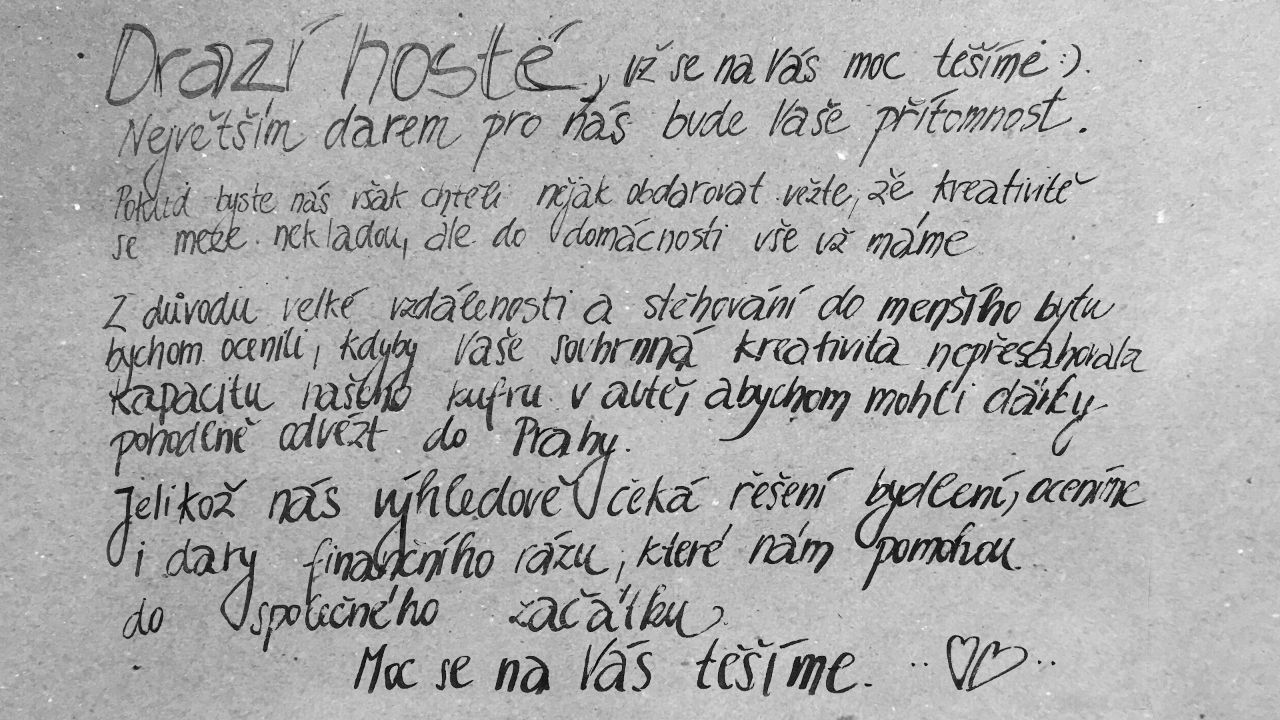 Drazí hosté, už se na Vás moc těšíme :).
Největším darem pro nás bude Vaše přítomnost.
Pokud byste nás však chtěli nějak obdarovat vězte, že kreativitě
se meze nekladou, ale do domácnosti vše už máme
Z důvodu velké vzdálenosti a stěhování do menšího bytu
bychom ocenili, kdyby Vaše souhrnná kreativita nepřesahovala
kapacitu našeho kufru v autě, abychom mohli dárky
pohodlně odvézt do Prahy.
Jelikož nás výhledově čeká řešení bydlení, oceníme
i dary finančního rázu, které nám pomohou
do společného začátku
Moc se na Vás těšíme.